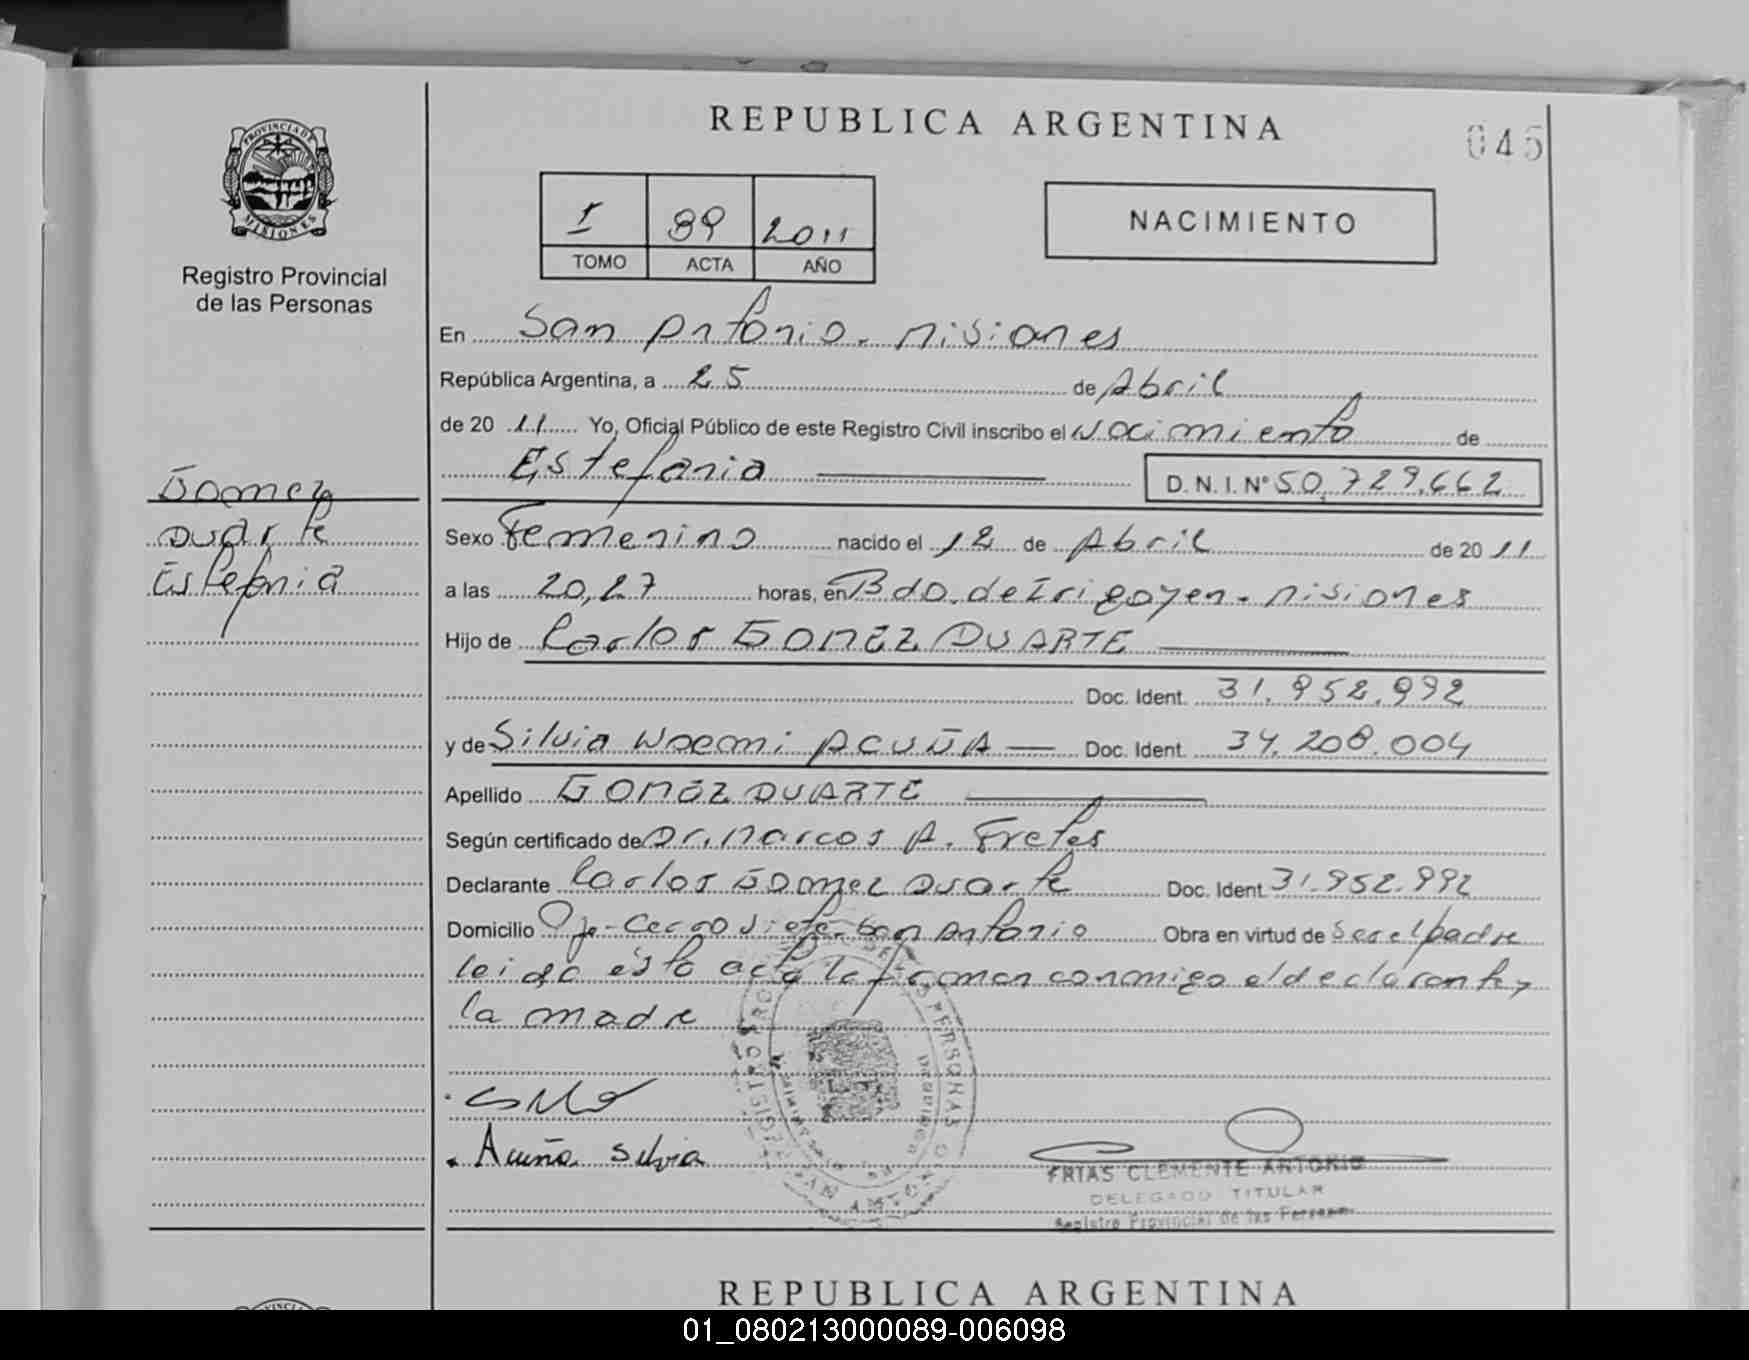 REPUBLICA ARGENTINA
045
PROVINCIA DE
MISIONES
Registro Provincial
de las Personas
I 89 2011
TOMO ACTA AÑO
NACIMIENTO
En San Antonio. Misiones
República Argentina, a 25 de Abril
de 20 11 Yo, Oficial Público de este Registro Civil inscribo el Nacimiento de
Estefania D. N. I. Nº 50.729.662
Gomez
Duarte
Estefania
Sexo Femenino nacido el 12 de Abril de 20 11
a las 20,27 horas, en Bdo. de Irigoyen - Misiones
Hijo de Carlos GOMEZ DUARTE
Doc. Ident. 31.952.992
y de Silvia Noemi ACUÑA Doc. Ident. 34.208.004
Apellido GOMEZ DUARTE
Según certificado de Dr. Marcos A. Fretes
Declarante Carlos Gomez Duarte Doc. Ident. 31.952.992
Domicilio Pje - Cerro Siete - San Antonio Obra en virtud de Ser el padre
leida ésta acta la firman conmigo el declarante y
la madre
Acuña Silvia
FRIAS CLEMENTE ANTONIO
DELEGADO TITULAR
Registro Provincial de las Personas
REPUBLICA ARGENTINA
01_080213000089-006098